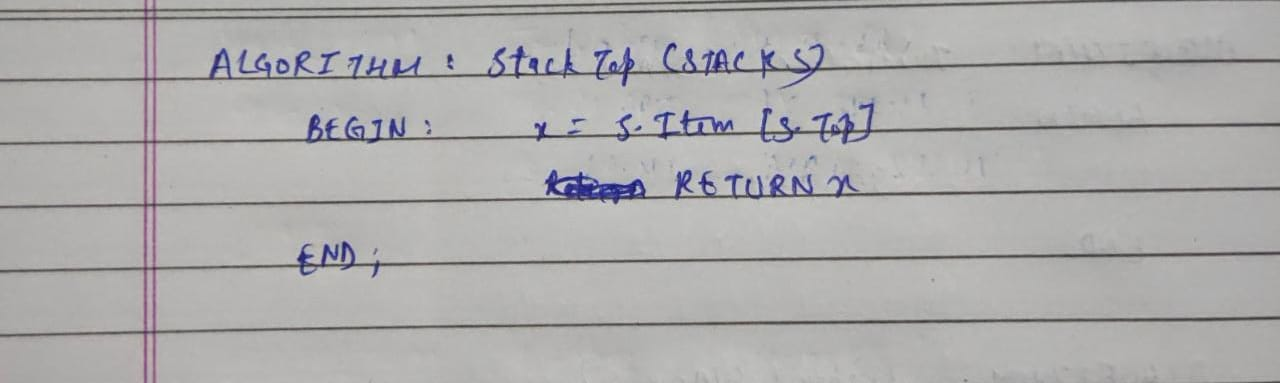 ALGORITHM : Stack Top (STACK S)
BEGIN : x = S. Item [S. Top]
RETURN x
END ;